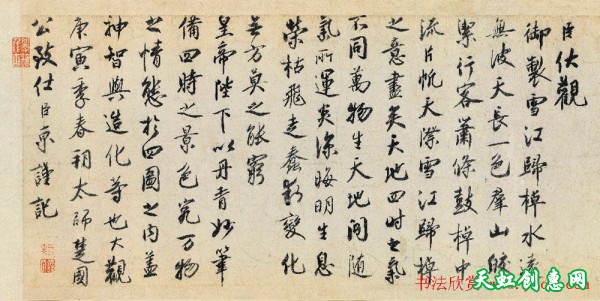 臣伏觀
御製雪江歸棹水遠
無波天長一色群山皎
潔行客蕭條鼓棹中
流片帆天際雪江歸棹
之意盡矣天地四時之氣
不同萬物生天地間隨
氣所運炎涼晦明生息
榮枯飛走蠢動變化
無方莫之能窮
皇帝陛下以丹青妙筆
備四時之景色究萬物
之情態於四圖之內蓋
神智與造化等也大觀
庚寅季春朔太師楚國
公致仕臣京謹記
书法欣赏
天虹创意网